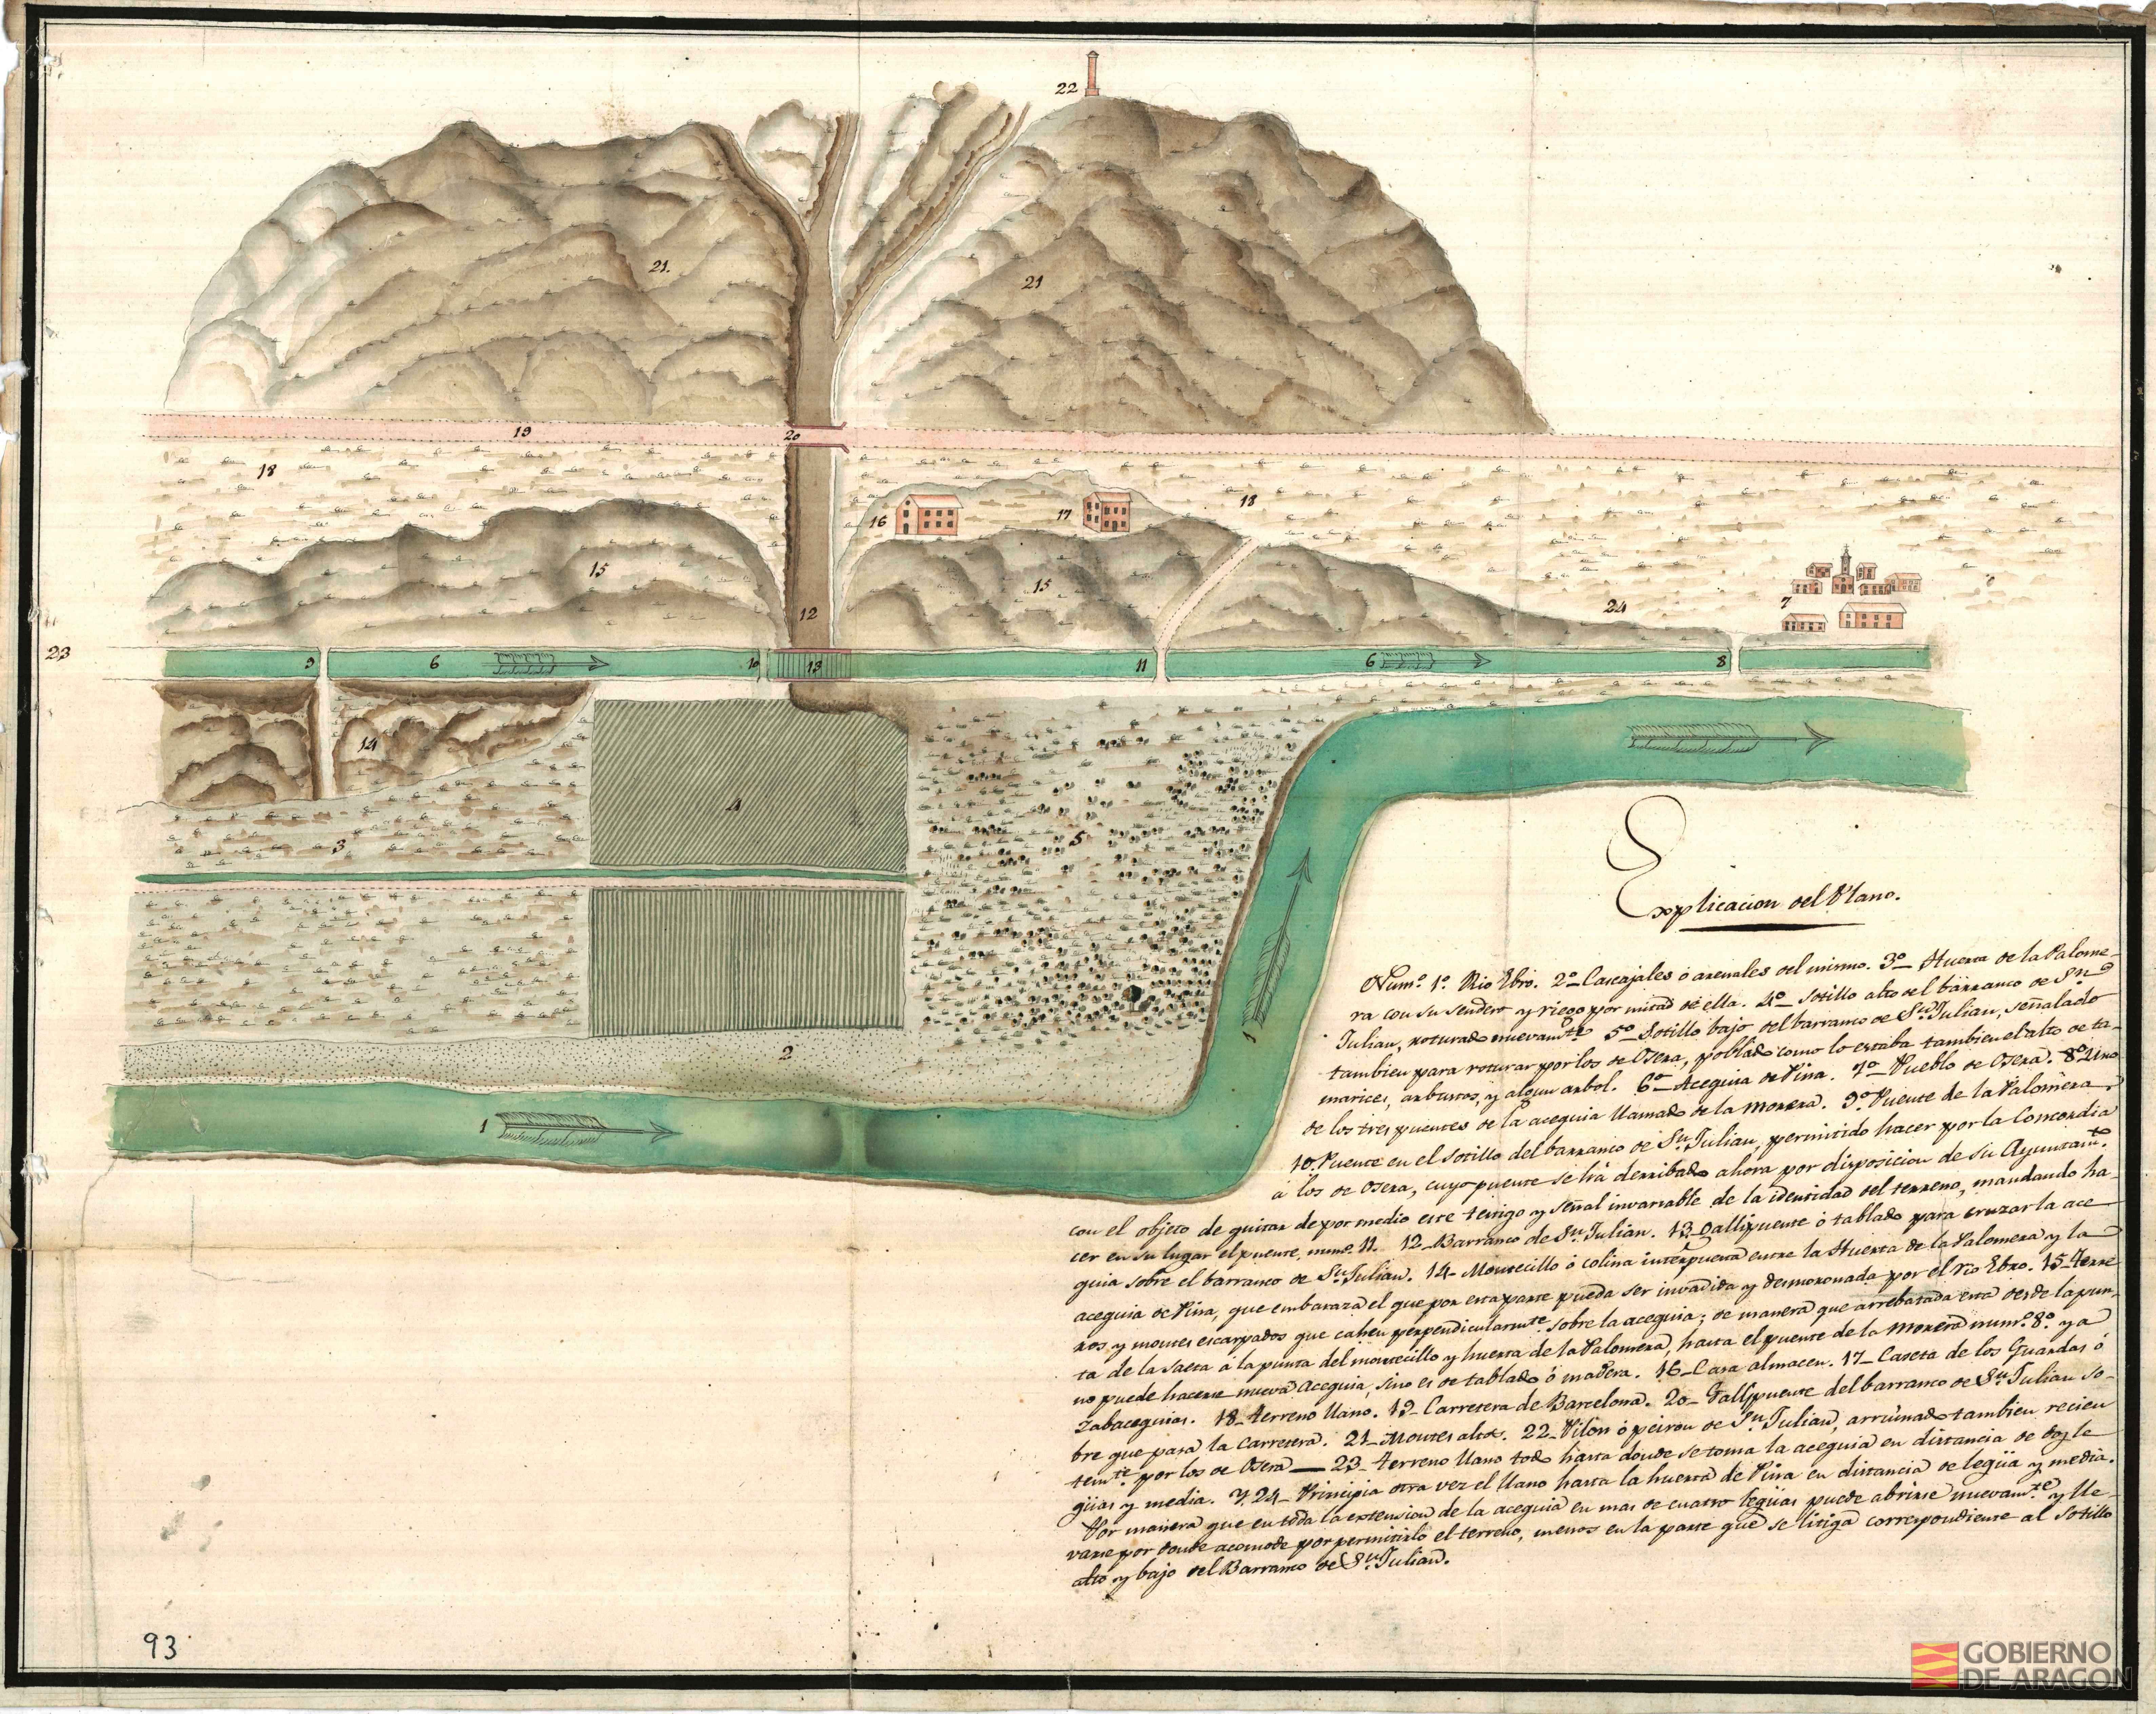 22
21.
21
19
20
18
18
16
17
15
15
24
7
12
23
9
6
10
13
11
6
8
14
4
3
5
2
1
1
Explicacion del Plano.
Num.º 1º. Rio Ebro. 2º Cascajales ó arenales del mismo. 3º Huerta de la Palome-
ra con su sendero y riego por mitad de ella. 4º Sotillo alto del barranco de Sn
Julian, roturado nuevamte 5º Sotillo bajo del barranco de Sn Julian, señalado
tambien para roturar por los de Osera, poblado como lo estaba tambien el alto de ta-
marices, arbustos, y algun arbol. 6º Acequia de Pina. 7º Pueblo de Osera. 8º Uno
de los tres puentes de la acequia llamado de la Morera. 9º Puente de la Palomera.
10. Puente en el Sotillo del barranco de Sn Julian, permitido hacer por la Concordia
á los de Osera, cuyo puente se há derribado ahora por disposicion de su Ayuntamto
con el objeto de quitar de por medio este testigo y señal invariable de la identidad del terreno, mandando ha-
cer en su lugar el puente, numº 11. 12_ Barranco de Sn Julian. 13_ Gallipuente ó tablado para cruzar la ace-
quia sobre el barranco de Sn Julian. 14_ Montecillo ó colina interpuesta entre la Huerta de la Palomera y la
acequia de Pina, que embaraza el que por esta parte pueda ser invadida y desmoronada por el rio Ebro. 15_ Terre
nos y montes escarpados que cahen perpendicularmte sobre la acequia; de manera que arrebatada esta desde la pun-
ta de la saeta á la punta del montecillo y huerta de la Palomera, hasta el puente de la Morera numº 8º ya
no puede hacerse nueva Acequia, sino es de tablado ó madera. 16_ Casa almacen. 17_ Caseta de los Guardas ó
Zabacequias. 18_ terreno llano. 19_ Carretera de Barcelona. 20_ Gallipuente del barranco de Sn Julian so-
bre que pasa la Carretera. 21_ Montes altos. 22_ Pilon ó peiron de Sn Julian, arruinado tambien recien
temte por los de Osera — 23_ terreno llano todo hasta donde se toma la acequia en distancia de dos le
guas y media. Y 24_ Principia otra vez el llano hasta la huerta de Pina en distancia de legüa y media.
Por manera que en toda la extension de la acequia en mas de cuatro legüas puede abrirse nuevamte y lle-
varse por donde acomode por permitirlo el terreno, menos en la parte que se litiga correspondiente al Sotillo
alto y bajo del Barranco de Sn Julian.
93
GOBIERNO
DE ARAGON